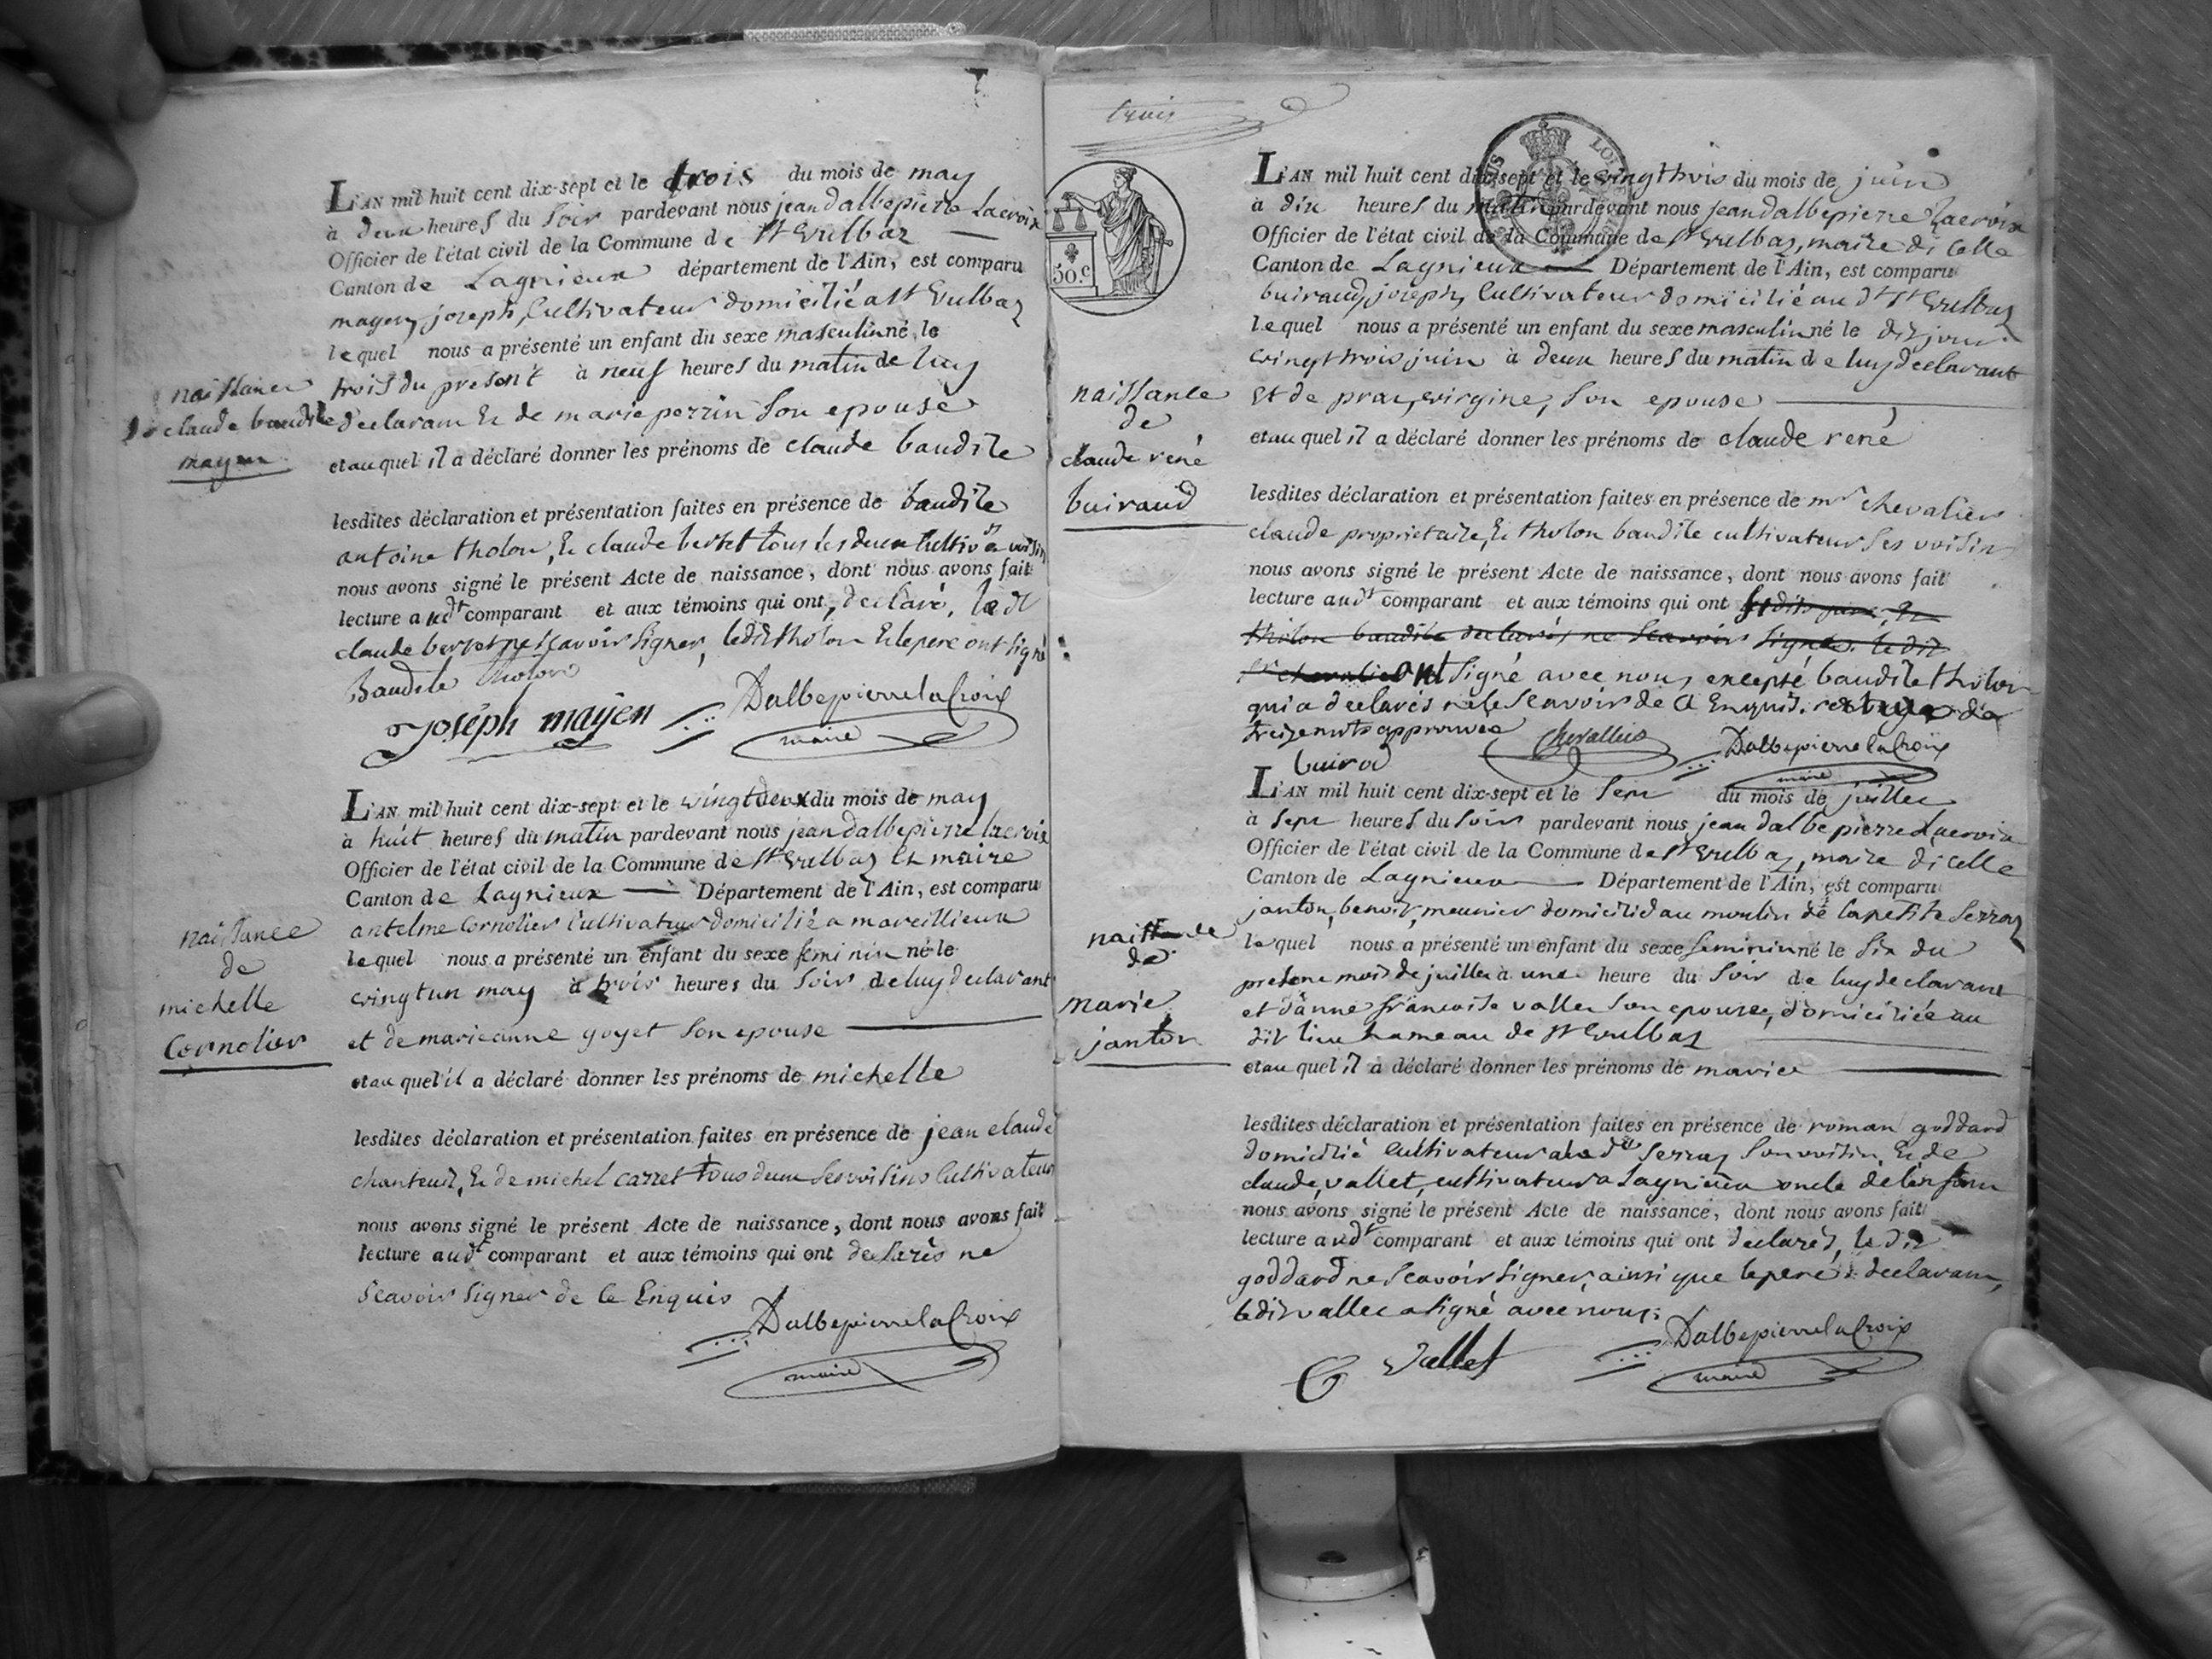 L'AN mil huit cent dix-sept et le trois du mois de may
à deux heures du soir pardevant nous jean dalbepierre Lacroix
Officier de l'état civil de la Commune de St Vulbaz
Canton de Lagnieux département de l'Ain, est comparu
mayen, joseph, Cultivateur domicilié a St Vulbaz
lequel nous a présenté un enfant du sexe masculin né le
trois du present à neuf heures du matin de luy
declarant Et de marie perrin son epouse
et au quel il a déclaré donner les prénoms de claude baudile
naissance
de claude baudile
mayen
lesdites déclaration et présentation faites en présence de baudile
antoine tholon, Et claude berset tous les deux Cultivrs et voisin
nous avons signé le présent Acte de naissance, dont nous avons fait
lecture audt comparant et aux témoins qui ont, declaré, le dt
claude berset ne scavoir signer, ledit tholon Et le pere ont signé
Baudile tholon
Joseph mayen
Dalbepierrelacroix
maire
L'AN mil huit cent dix-sept et le vingtdeux du mois de may
à huit heures du matin pardevant nous jean dalbepierre lacroix
Officier de l'état civil de la Commune de St Vulbaz Et maire
Canton de Lagnieux Département de l'Ain, est comparu
antelme Cornolier Cultivateur domicilié a marcillieux
lequel nous a présenté un enfant du sexe feminin né le
vingtun may à trois heures du soir de luy declarant
et de marieanne goyet son epouse
et au quel il a déclaré donner les prénoms de michelle
naissance
de
michelle
Cornolier
lesdites déclaration et présentation faites en présence de jean claude
chanteur, Et de michel carret tous deux ses voisins Cultivateurs
nous avons signé le présent Acte de naissance, dont nous avons fait
lecture audt comparant et aux témoins qui ont declarés ne
scavoir signer de ce Enquis
Dalbepierrelacroix
maire
trois
50.c
L'AN mil huit cent dix-sept et le vingttrois du mois de juin
à dix heures du matin pardevant nous jean dalbepierre Lacroix
Officier de l'état civil de la Commune de St Vulbaz, maire dicelle
Canton de Lagnieux Département de l'Ain, est comparu
buiraud, joseph, Cultivateur domicilié au dt St Vulbaz
lequel nous a présenté un enfant du sexe masculin né le dit jour
vingttrois juin à deux heures du matin de luy declarant
et de prax, virgine, son epouse
et au quel il a déclaré donner les prénoms de claude rené
naissance
de
claude rené
buiraud
lesdites déclaration et présentation faites en présence de mr chevalier
claude proprietaire, Et tholon baudile cultivateur ses voisins
nous avons signé le présent Acte de naissance, dont nous avons fait
lecture audt comparant et aux témoins qui ont
tholon baudile declarés ne scavoir signer. le dit
chevalier ont signé avec nous excepté baudile tholon
qui a declarés ne le scavoir de ce Enquis. de
treize mots approuvee
Chevallier
Dalbepierrelacroix
maire
buirod
L'AN mil huit cent dix-sept et le sept du mois de juillet
à sept heures du soir pardevant nous jean dalbepierre Lacroix
Officier de l'état civil de la Commune de St Vulbaz, maire dicelle
Canton de Lagnieux Département de l'Ain, est comparu
janton, benoit, meunier domicilié au moulin de lapetite Serraz
lequel nous a présenté un enfant du sexe feminin né le six du
present mois de juillet à une heure du soir de luy declarant
et d'anne francoise vallet son epouse, domiciliée au
dit lieu hameau de St Vulbaz
et au quel il a déclaré donner les prénoms de marie
naissance
de
marie
janton
lesdites déclaration et présentation faites en présence de roman goddard
domicilié Cultivateur a la dte Serraz son voisin, Et de
claude, vallet, cultivateur a Lagnieux oncle de lenfant
nous avons signé le présent Acte de naissance, dont nous avons fait
lecture audt comparant et aux témoins qui ont declarés, le dit
goddard ne scavoir signer, ainsi que le pere declarant,
ledit vallet a signé avec nous.
C Vallet
Dalbepierrelacroix
maire